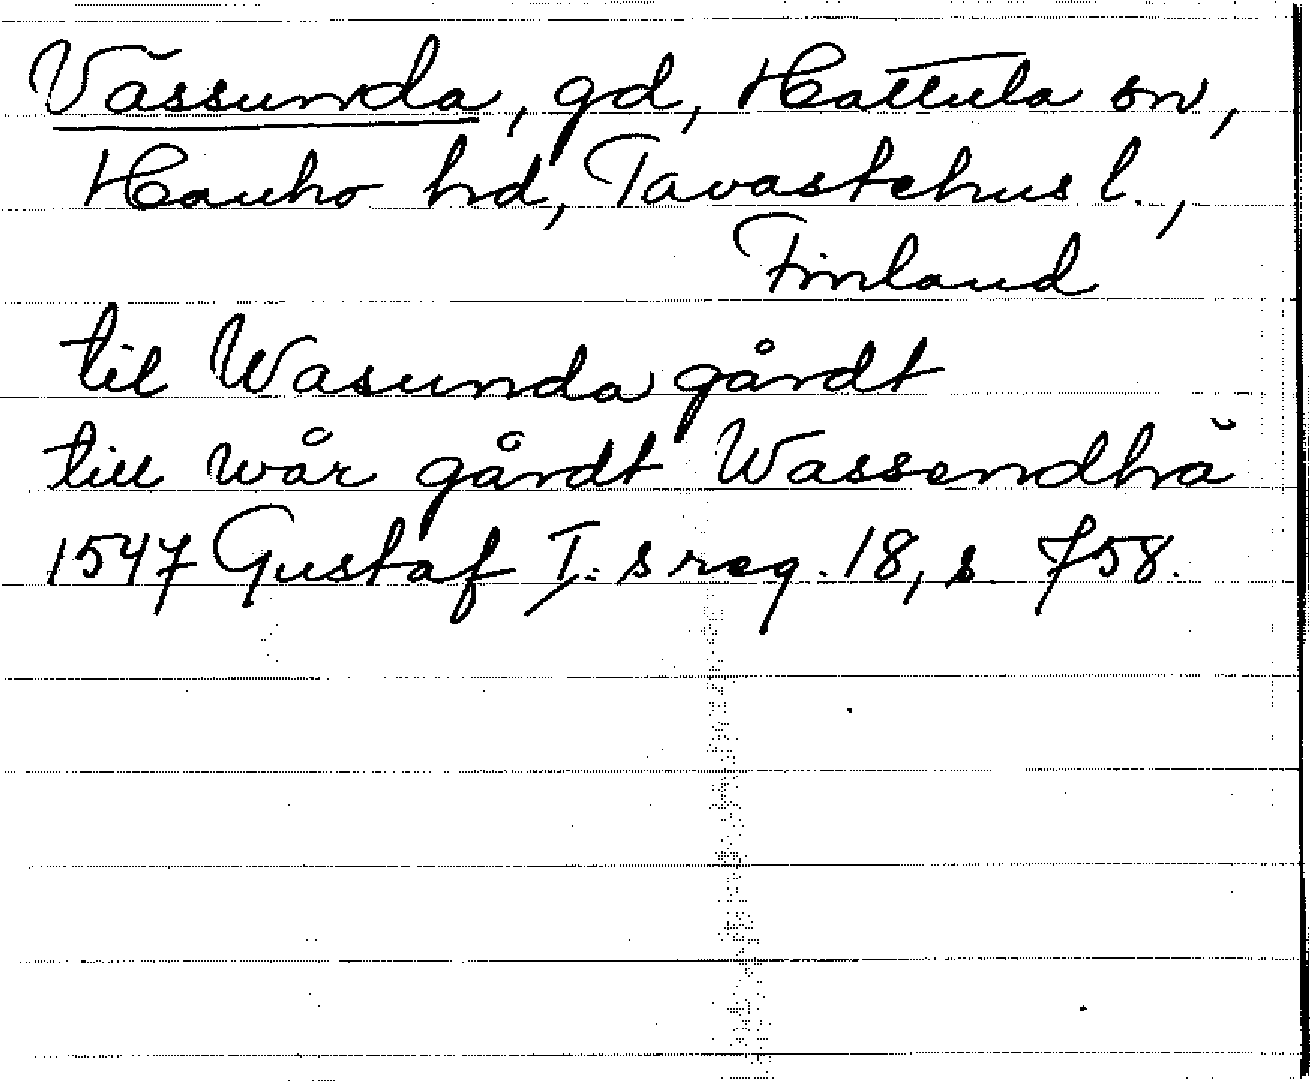 Vässunda, gd, Hattula sn,
Hauho hd, Tavastehus l.,
Finland
til Wasunda gårdt
till wår gårdt Wassendhä
1547 Gustaf I:s reg. 18, s. 758.